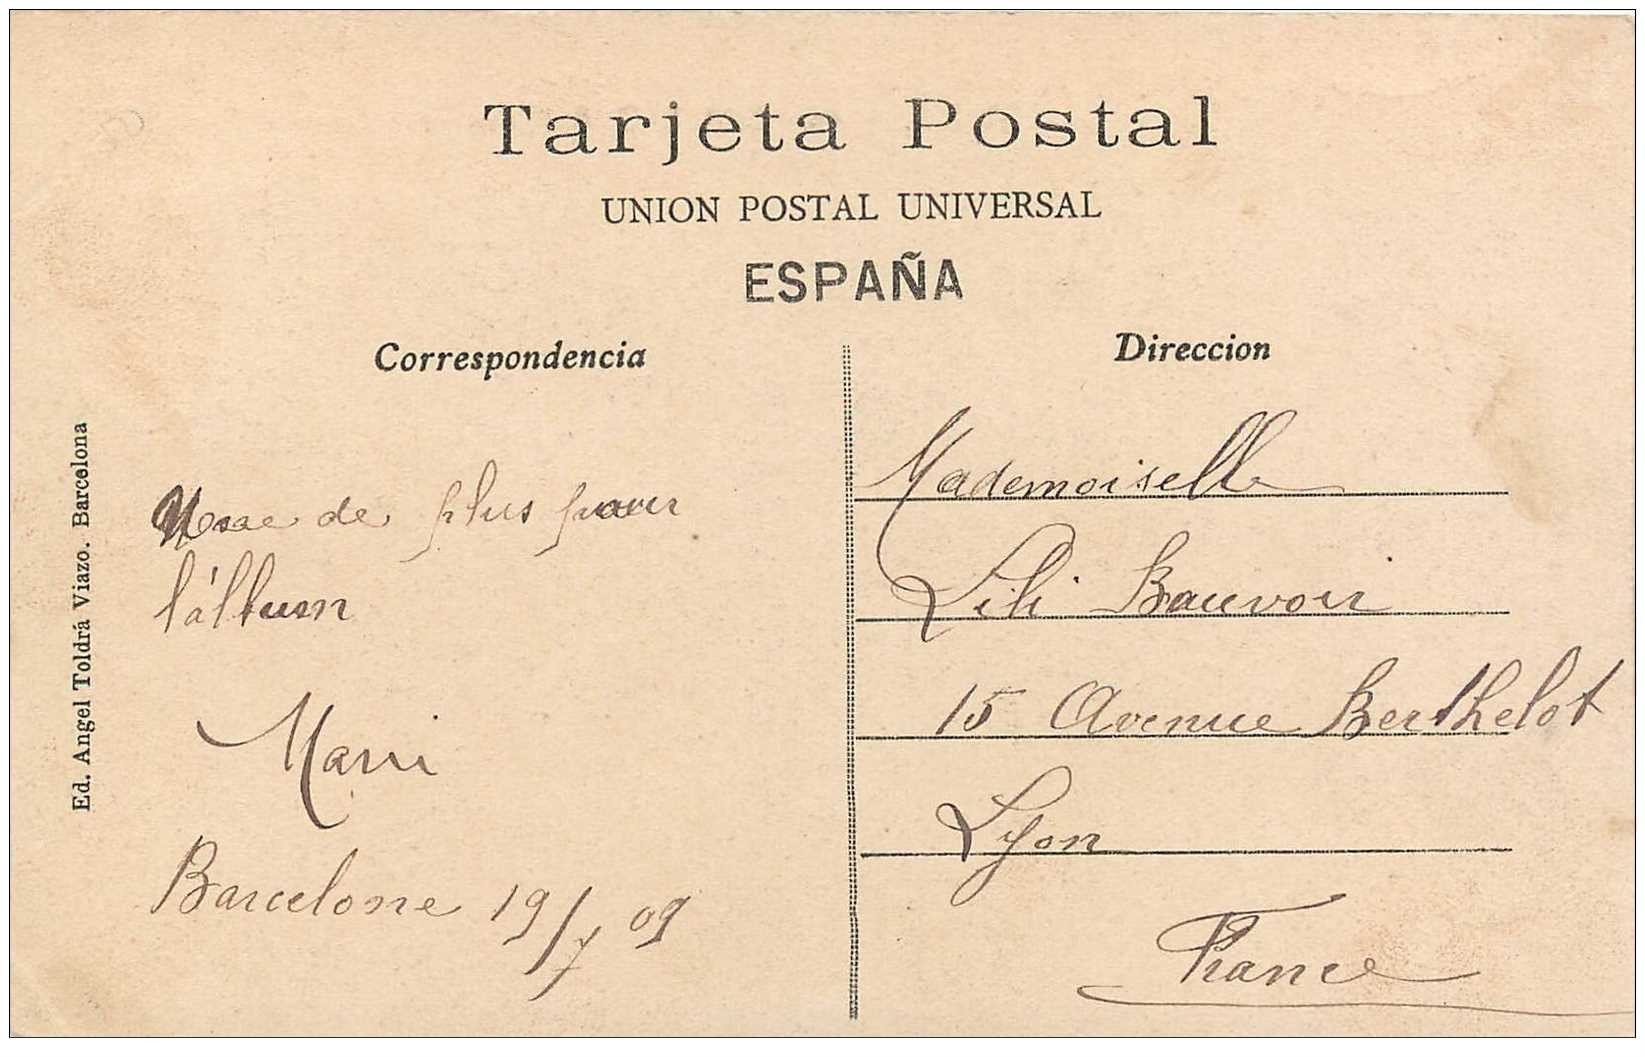 Tarjeta Postal
UNION POSTAL UNIVERSAL
ESPAÑA
Correspondencia
Direccion
Ed. Angel Toldrá Viazo. Barcelona
Une de plus pour
l'album
Mani
Barcelone 19/7 09
Mademoiselle
Lili Bauvoir
15 Avenue Berthelot
Lyon
France